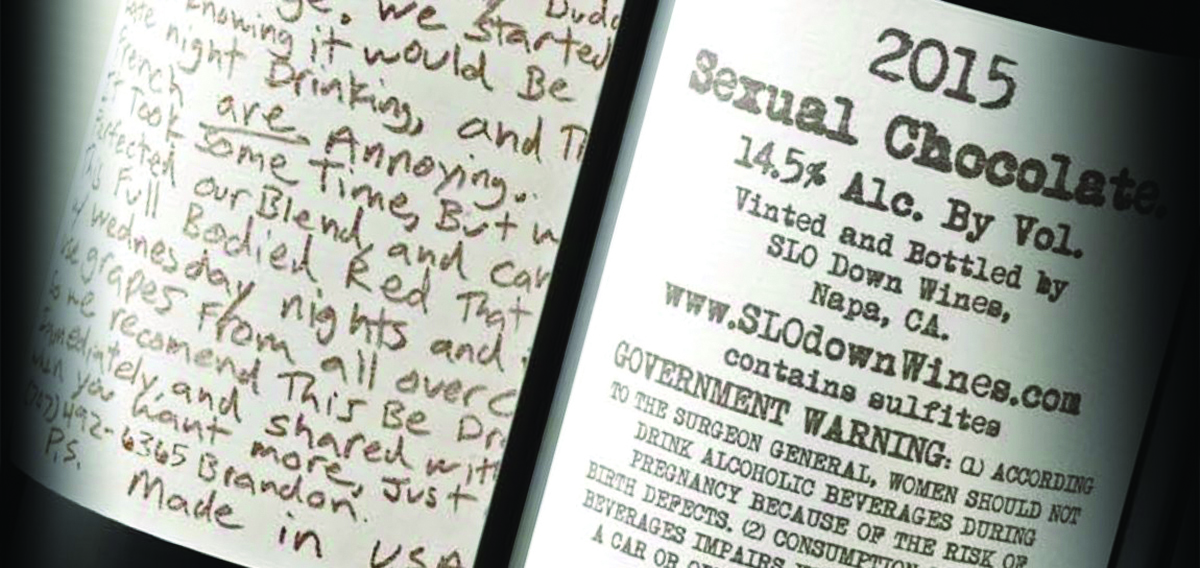 Dudd
ge. We started
knowing it would Be
late night Drinking, and Th
French are Annoying..
It Took Some Time, But w
Perfected our Blend, and can
This Full Bodied Red That
wednesday nights and
use grapes From all over C
So we recomend This Be Dr
Immediately, and shared with
when you want more, Just
(707)492-6365 Brandon.
P.S. Made in USA
2015
Sexual Chocolate.
14.5% Alc. By Vol.
Vinted and Bottled by
SLO Down Wines,
Napa, CA.
www.SLOdownWines.com
contains sulfites
GOVERNMENT WARNING: (1) ACCORDING
TO THE SURGEON GENERAL, WOMEN SHOULD NOT
DRINK ALCOHOLIC BEVERAGES DURING
PREGNANCY BECAUSE OF THE RISK OF
BIRTH DEFECTS. (2) CONSUMPTION
BEVERAGES IMPAIRS
A CAR OR